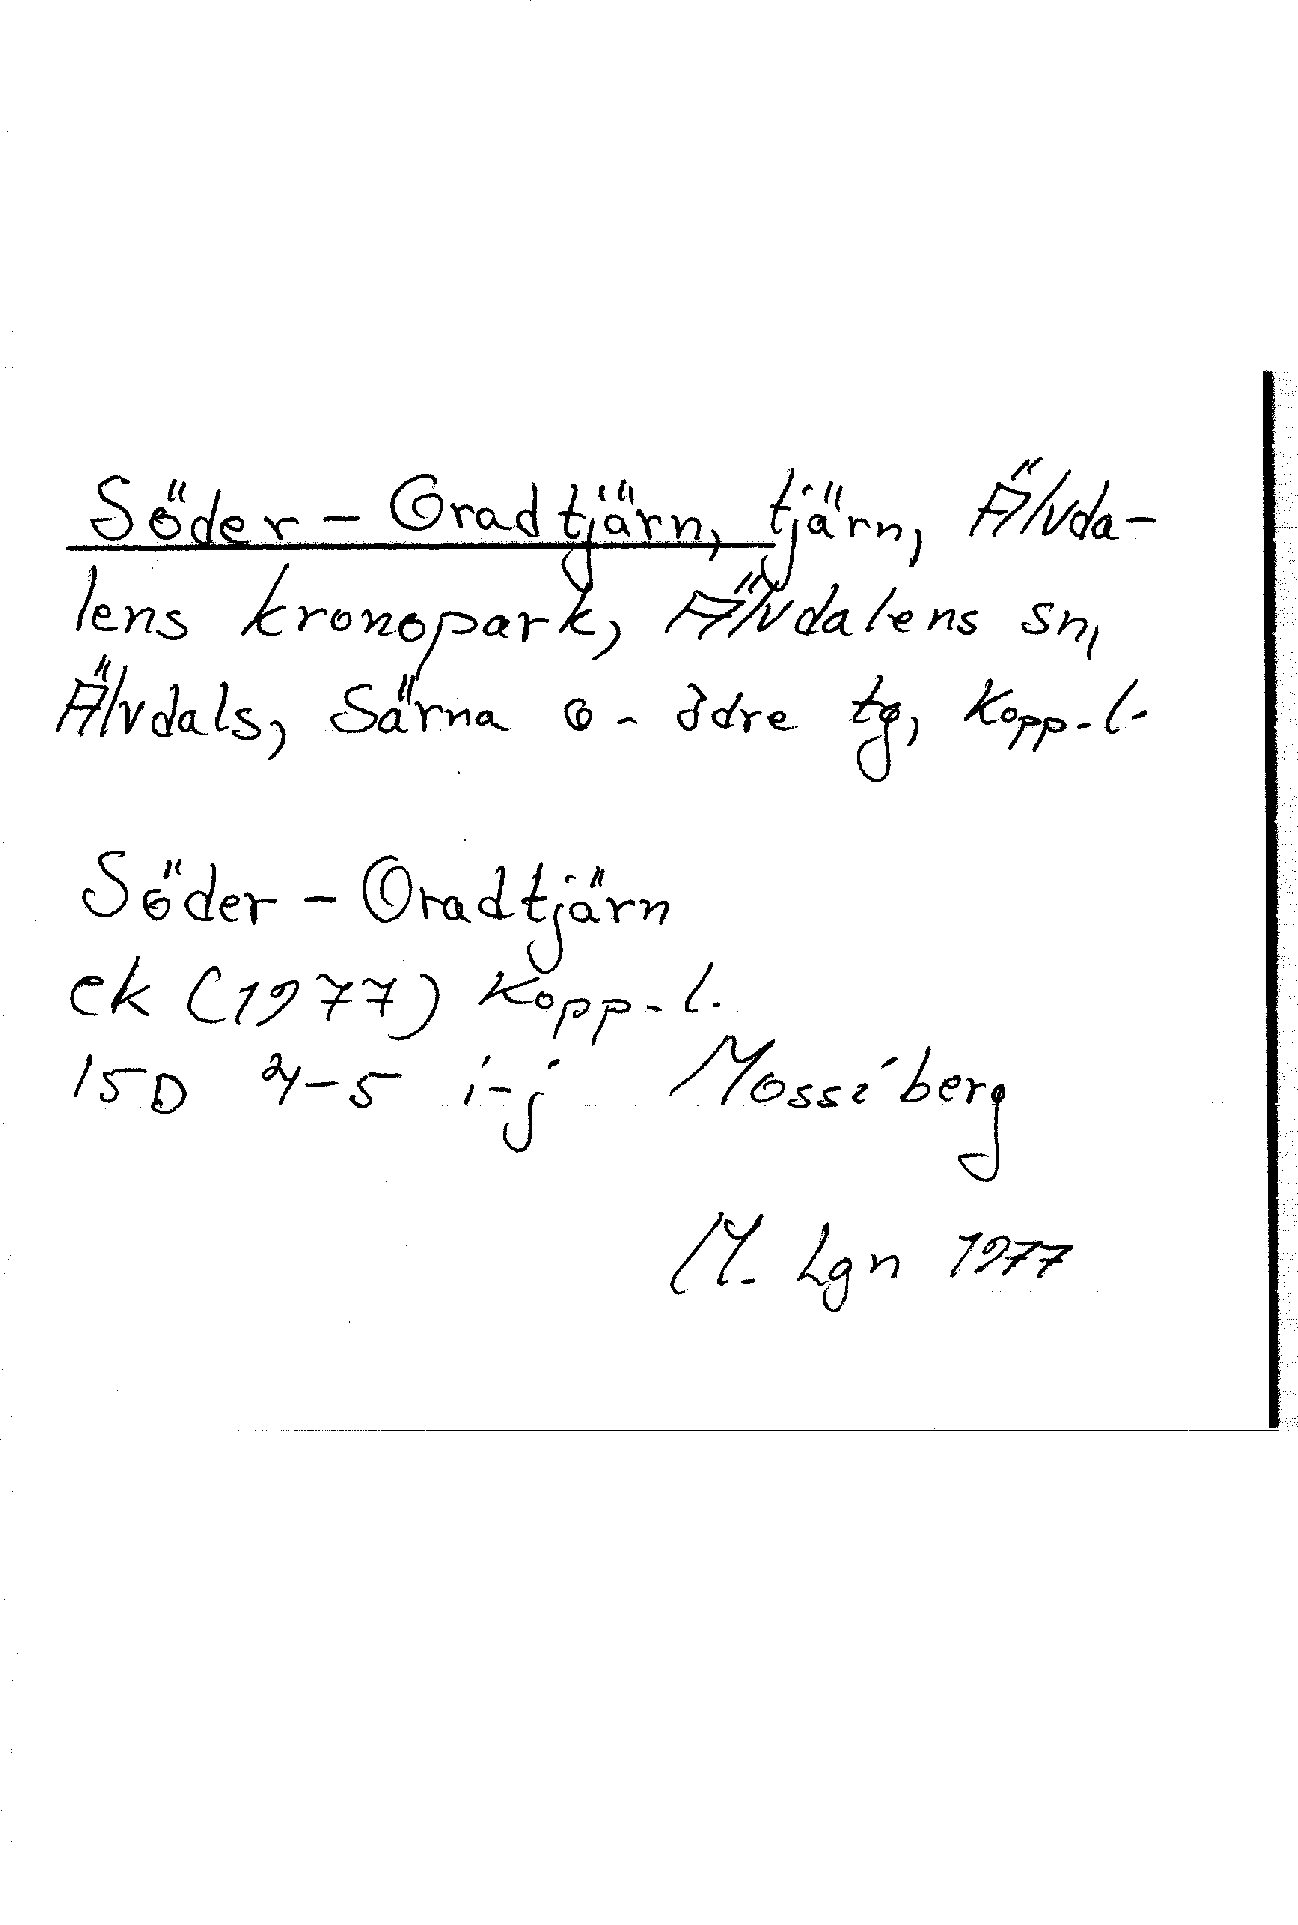 Söder-Oradtjärn, tjärn, Älvda-
lens kronopark, Älvdalens sn,
Älvdals, Särna o. Idre tg, Kopp. l.
Söder-Oradtjärn
ek (1977) Kopp. l.
15D 4-5 i-j Mossiberg
M. Lgn 1977